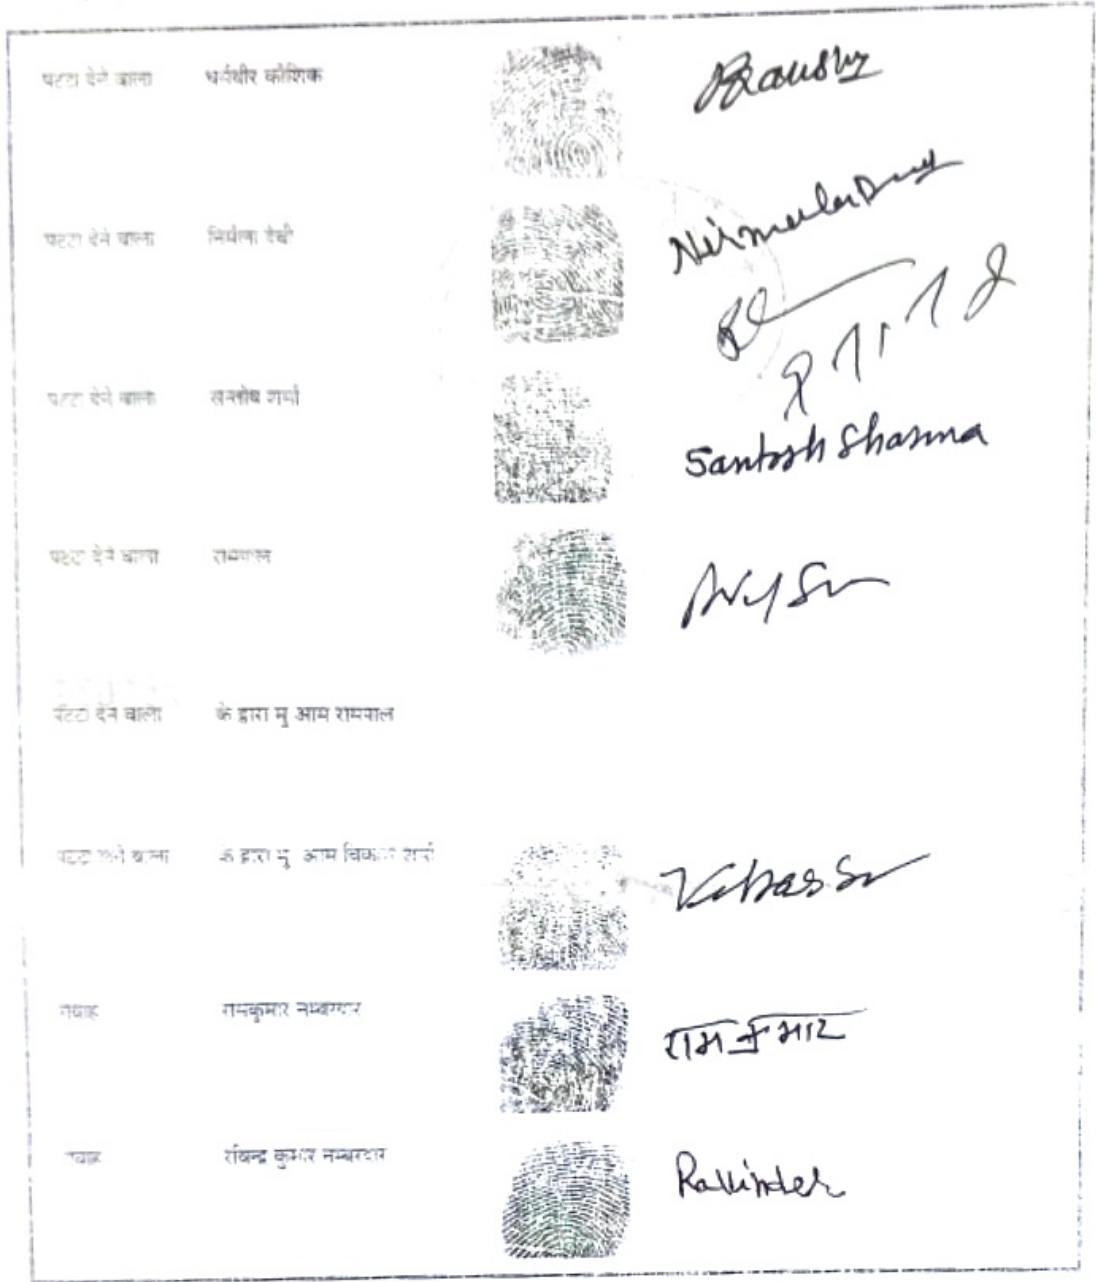 पटटा देने वाला धर्मवीर कौशिक
पटटा देने वाला निर्मला देवी Nirmala Devi
पटटा देने वाला सन्तोष शर्मा Santosh Sharma
पटटा देने वाला रामपाल
पटटा देने वाला के द्वारा मु आम रामपाल
पटटा वाला के द्वारा मु आम विकास शर्मा
गवाह रामकुमार नम्बरदार रामकुमार
गवाह रविन्द्र कुमार नम्बरदार Ravinder